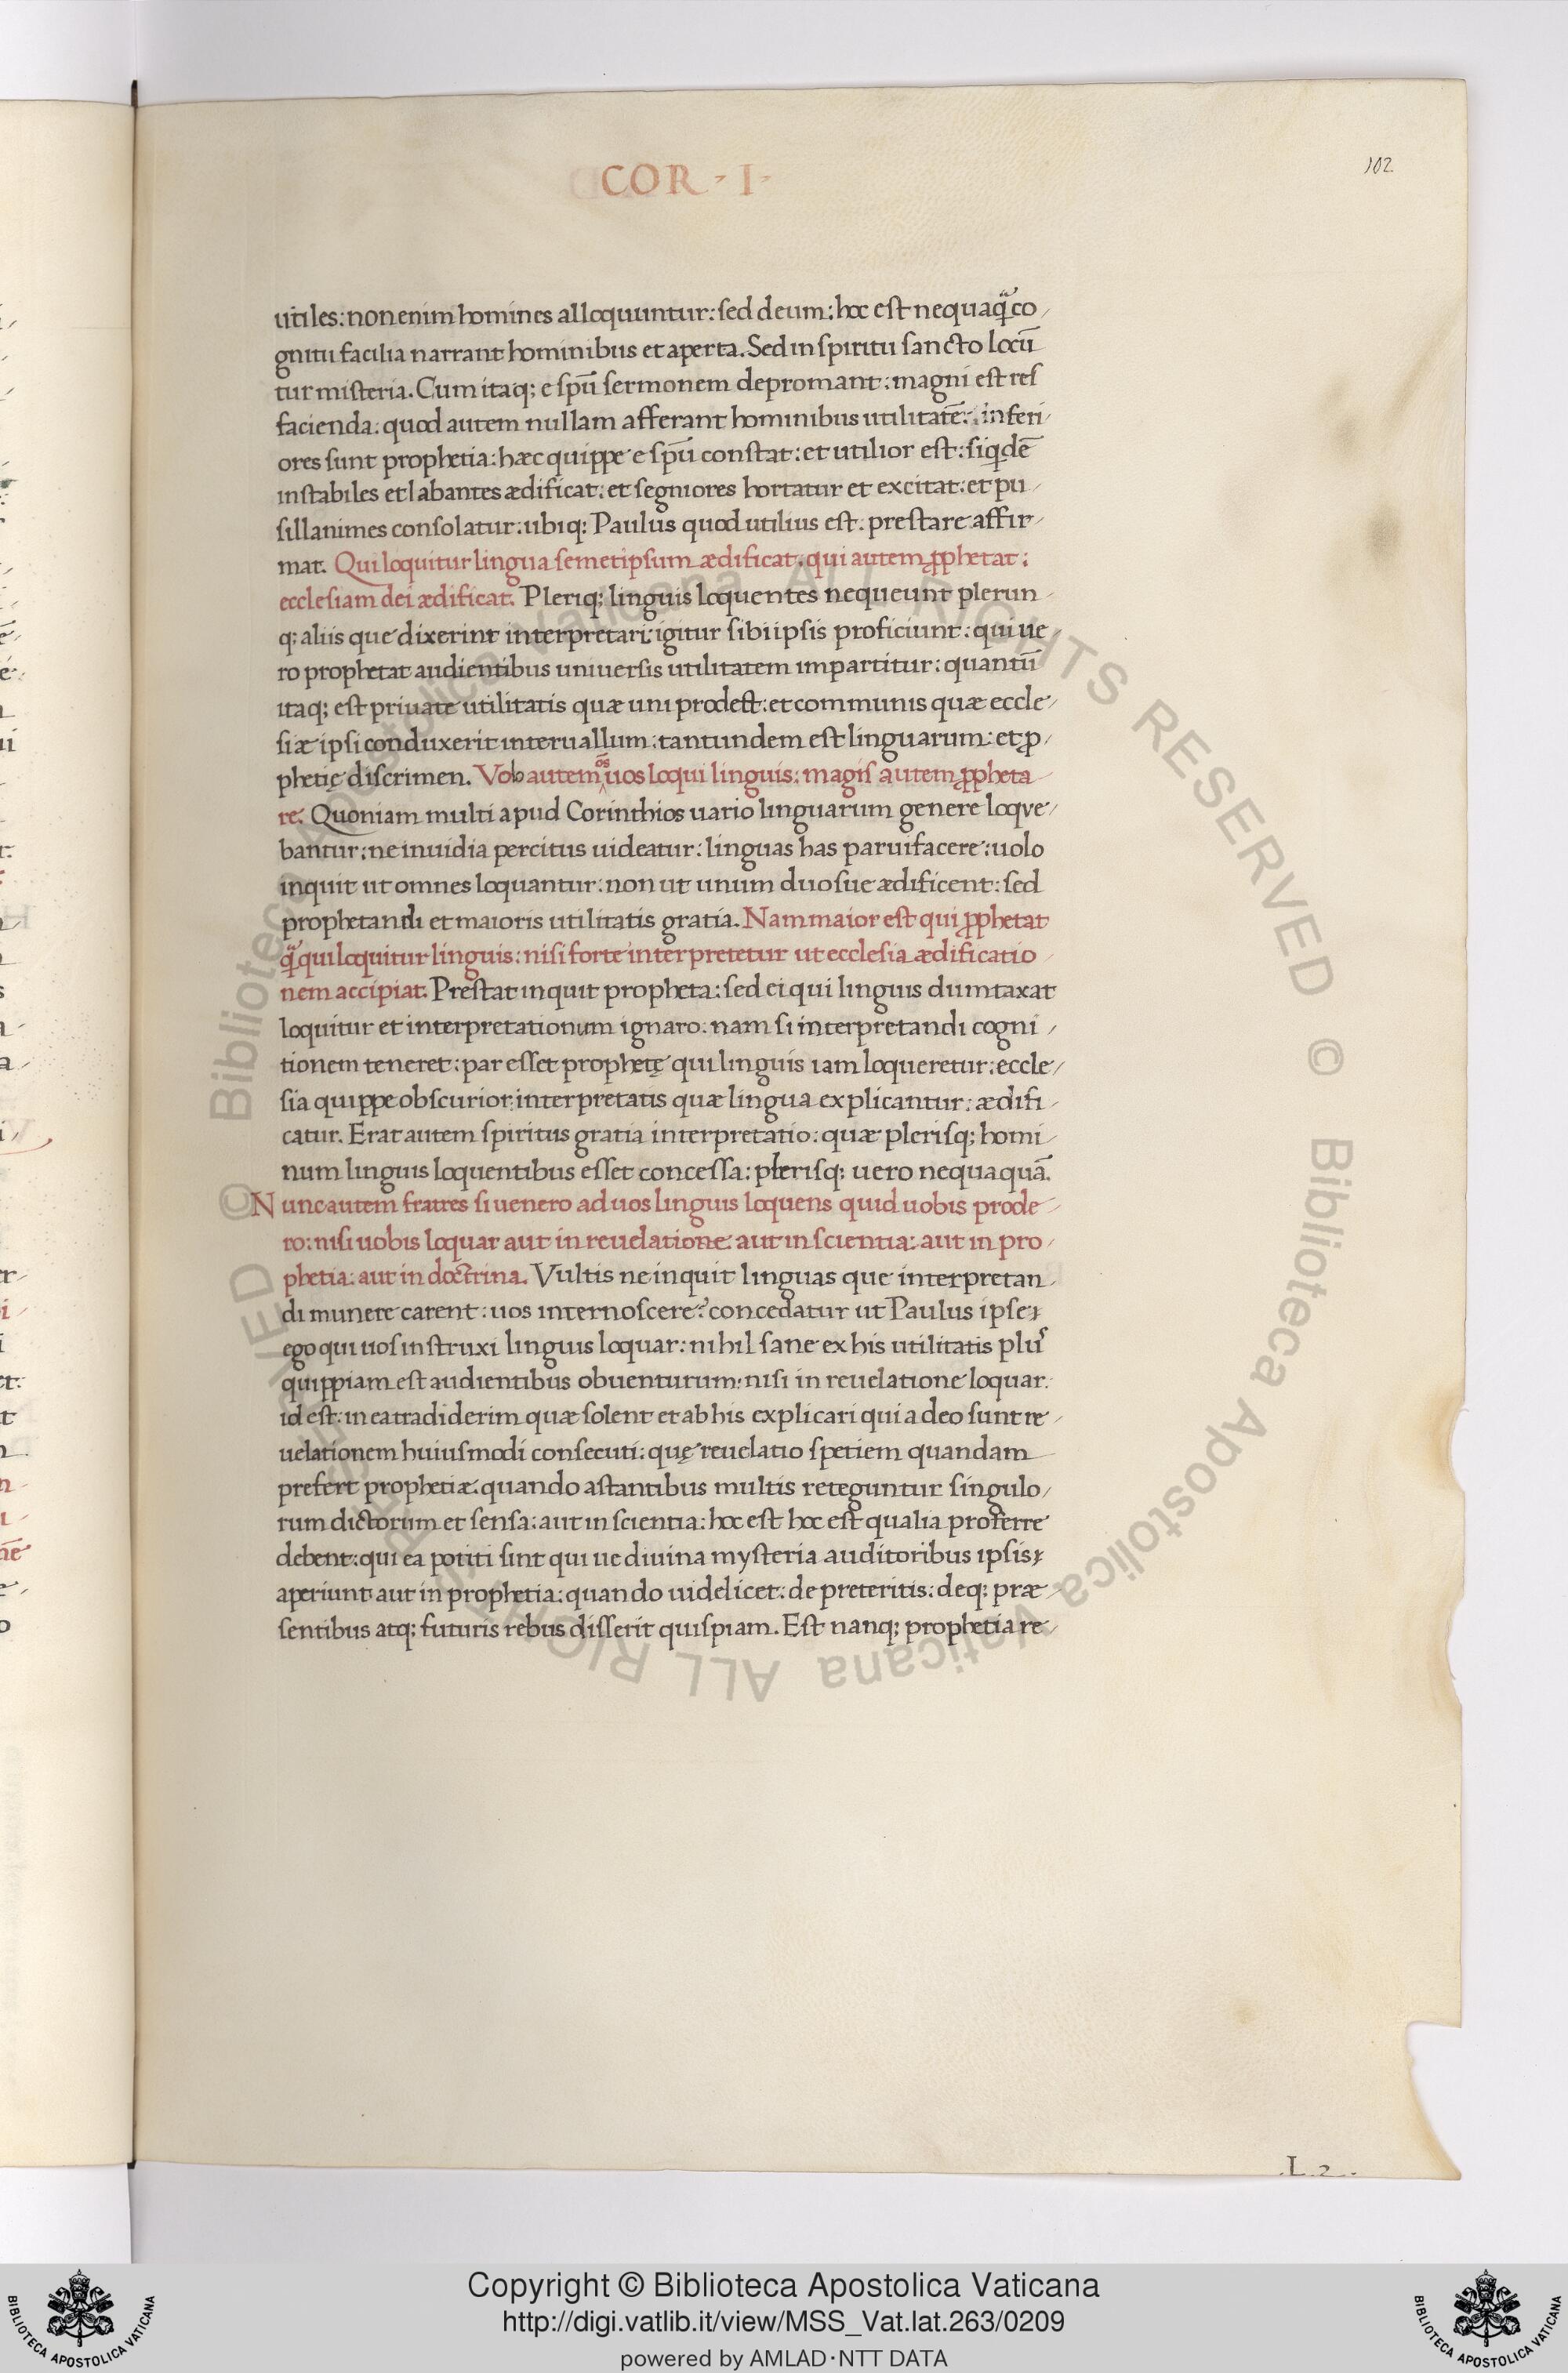 COR · I ·
102
utiles: non enim homines alloquuntur: sed deum: hoc est nequaq̃ co/
gnitu facilia narrant hominibus et aperta. Sed in spiritu sancto locũ
tur misteria. Cum itaq; e spũ sermonem depromant: magni est res
facienda: quod autem nullam afferant hominibus utilitatẽ: inferi/
ores sunt prophetia: hæc quippe e spũ constat: et utilior est: siqdẽ
instabiles et labantes ædificat: et segniores hortatur et excitat: et pu/
sillanimes consolatur: ubiq; Paulus quod utilius est. prestare affir/
mat. Qui loquitur lingua semetipsum ædificat. qui autem ꝓphetat:
ecclesiam dei ædificat. Pleriq; linguis loquentes nequeunt plerun/
q; aliis que dixerint interpretari: igitur sibi ipsis proficiunt: qui ue/
ro prophetat audientibus uniuersis utilitatem impartitur: quantũ
itaq; est priuate utilitatis quæ uni prodest: et communis quæ eccle/
siæ ipsi conduxerit interuallum: tantundem est linguarum: et ꝓ/
phetię discrimen. Volo autem oẽs uos loqui linguis: magis autem ꝓpheta/
re. Quoniam multi apud Corinthios uario linguarum genere loqve/
bantur: ne inuidia percitus uideatur: linguas has paruifacere: uolo
inquit ut omnes loquantur: non ut unum duosue ædificent: sed
prophetandi et maioris utilitatis gratia. Nam maior est qui ꝓphetat
q̃ qui loquitur linguis: nisi forte interpretetur ut ecclesia ædificatio/
nem accipiat. Prestat inquit propheta: sed ei qui linguis dumtaxat
loquitur et interpretationum ignaro: nam si interpretandi cogni/
tionem teneret: par esset prophetę qui linguis iam loqueretur: eccle/
sia quippe obscurior interpretatis quæ lingua explicantur: ædifi/
catur. Erat autem spiritus gratia interpretatio: quæ plerisq; homi/
num linguis loquentibus esset concessa: plerisq; uero nequaquã.
Nunc autem fratres si uenero ad uos linguis loquens quid uobis prode/
ro: nisi uobis loquar aut in reuelatione: aut in scientia: aut in pro/
phetia: aut in doctrina. Vultis ne inquit linguas que interpretan/
di munere carent: uos internoscere? concedatur ut Paulus ipse
ego qui uos instruxi linguis loquar: nihil sane ex his utilitatis plus
quippiam est audientibus obuenturum: nisi in reuelatione loquar.
id est: in ea tradiderim quæ solent et ab his explicari qui a deo sunt re/
uelationem huiusmodi consecuti: quę reuelatio spetiem quandam
prefert prophetiæ: quando astantibus multis reteguntur singulo/
rum dictorum et sensa: aut in scientia: hoc est hoc est qualia proferre
debent: qui ea potiti sint qui ue diuina mysteria auditoribus ipsis
aperiunt aut in prophetia: quando uidelicet: de preteritis: deq; præ/
sentibus atq; futuris rebus disserit quispiam. Est nanq; prophetia re/
.L.2.
© Biblioteca Apostolica Vaticana ALL RIGHTS RESERVED © Biblioteca Apostolica Vaticana ALL RIGHTS RESERVED
Copyright © Biblioteca Apostolica Vaticana
http://digi.vatlib.it/view/MSS_Vat.lat.263/0209
powered by AMLAD·NTT DATA
BIBLIOTECA APOSTOLICA VATICANA
BIBLIOTECA APOSTOLICA VATICANA